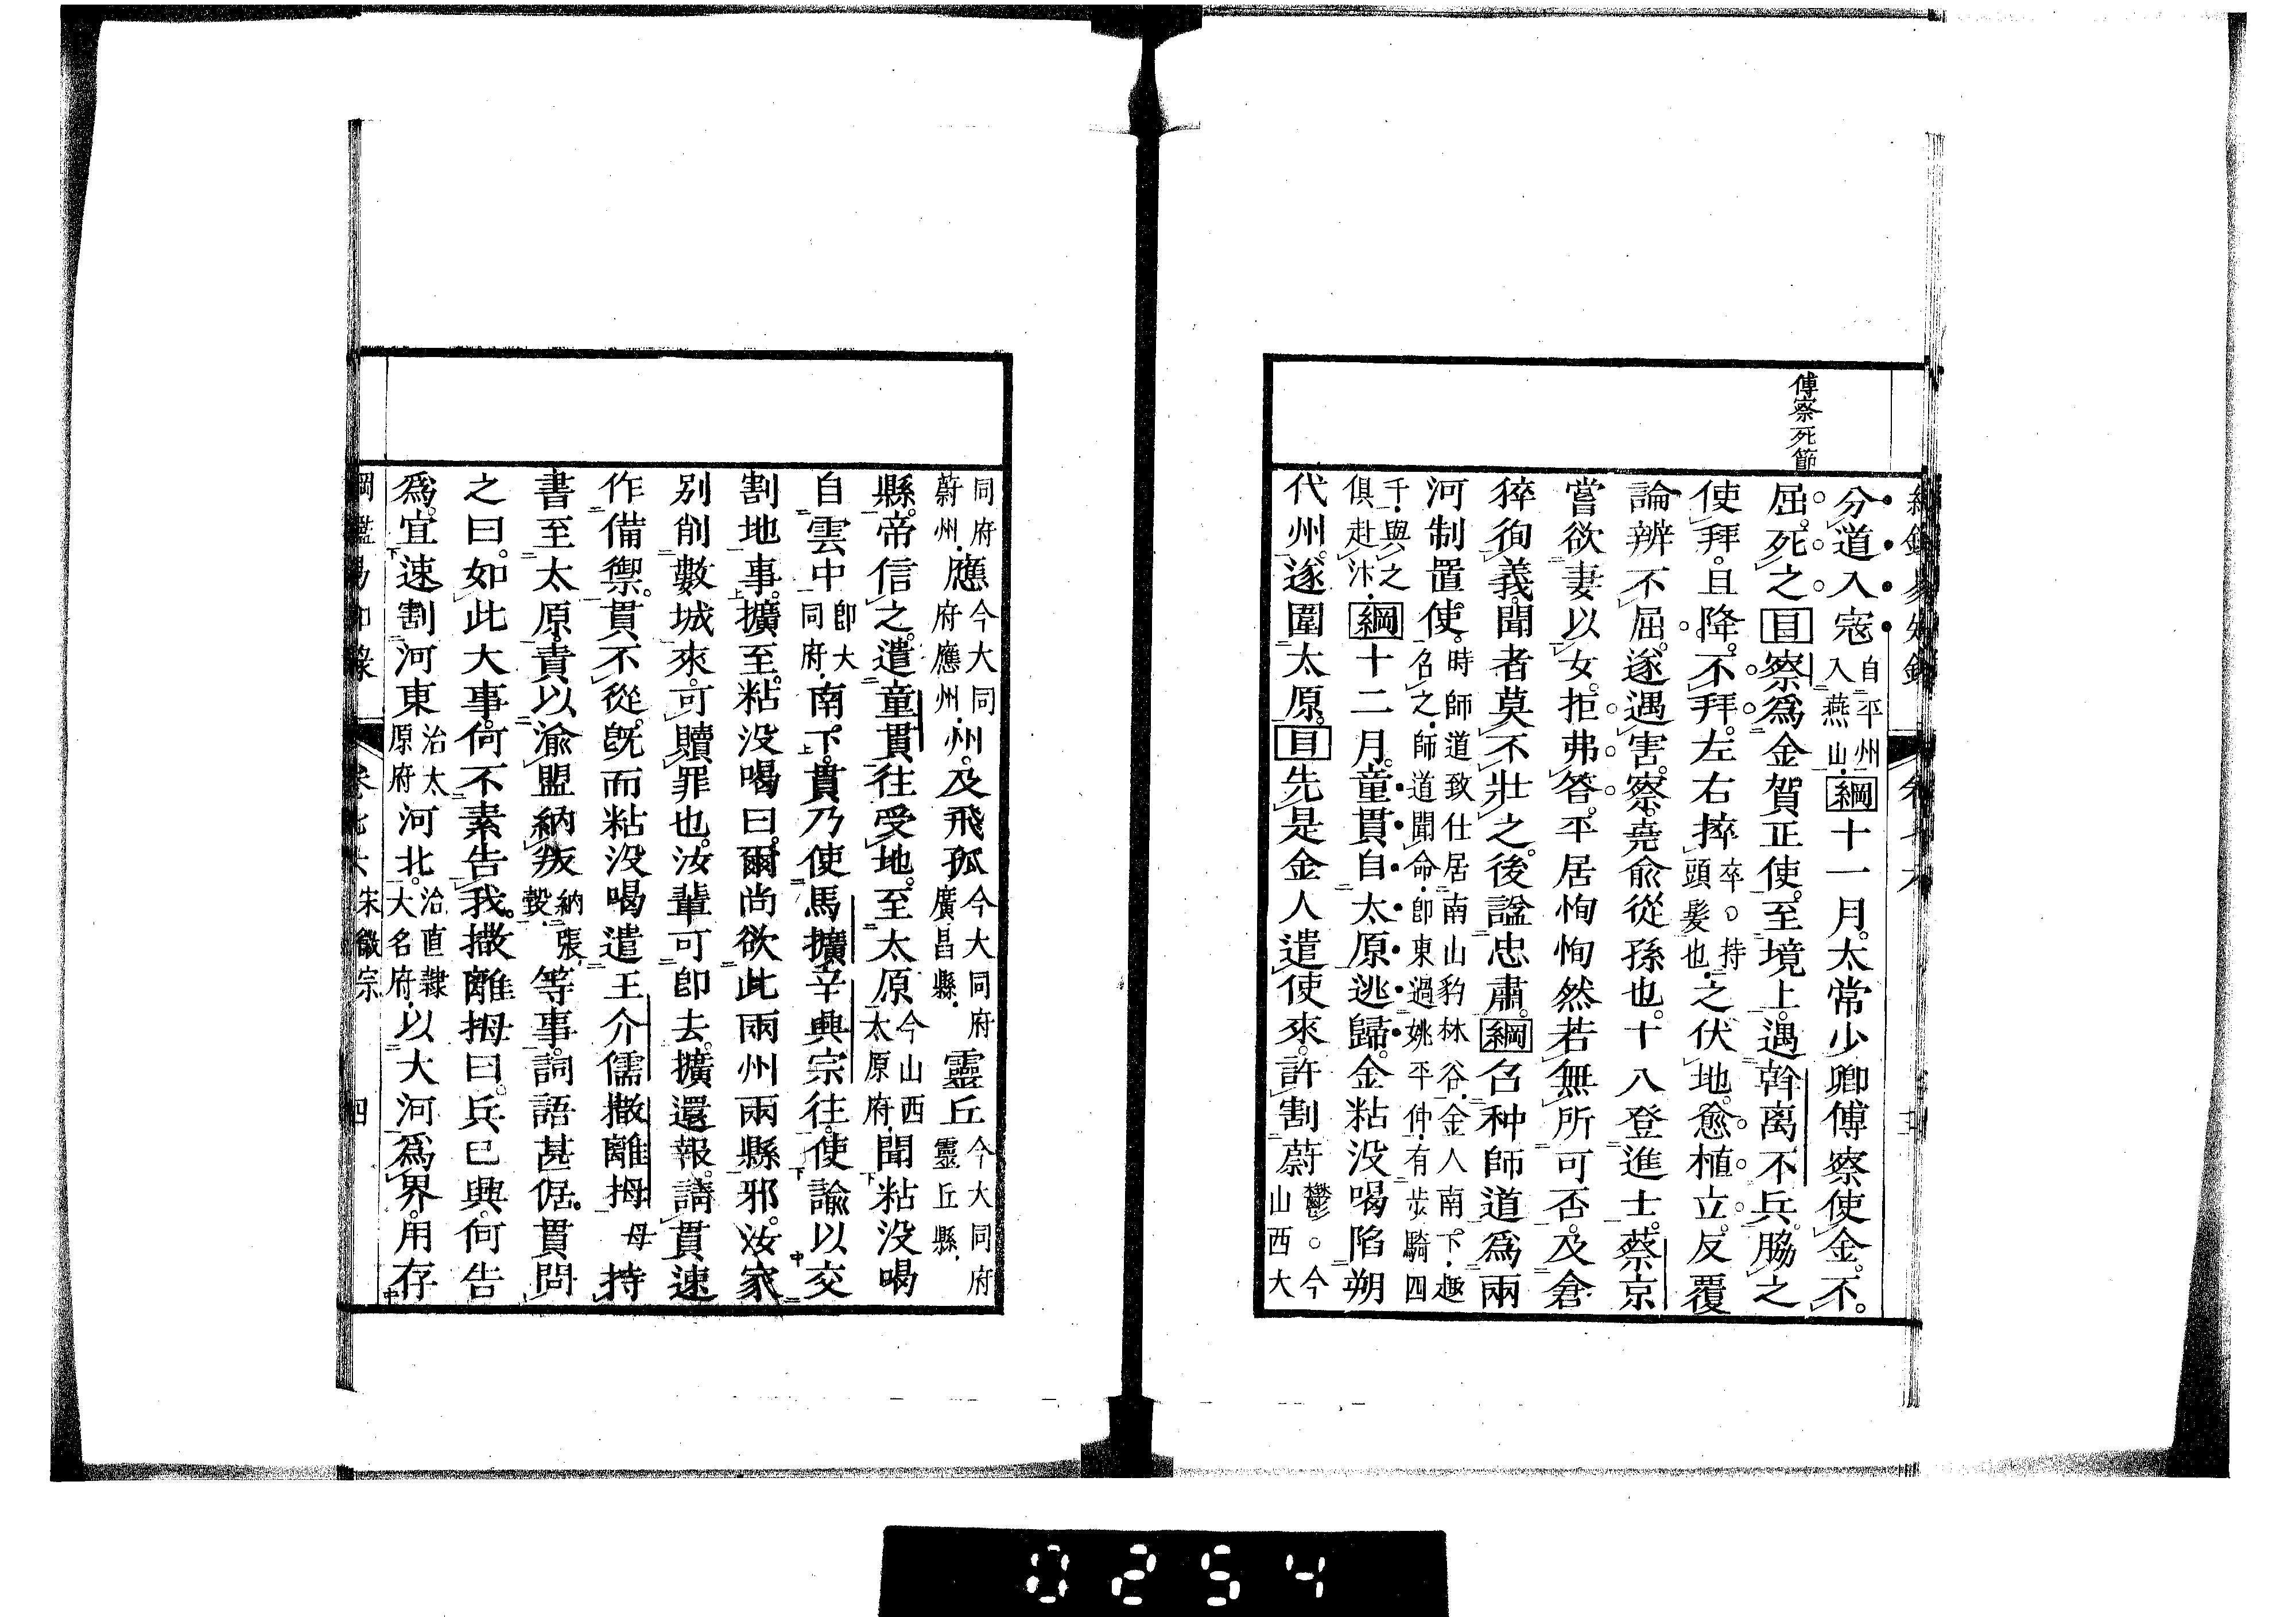 傅察死節
分道入寇自平州入燕山綱十一月太常少卿傅察使金不
屈死之目察爲金賀正使至境上遇斡离不兵脇之
使拜且降不拜左右捽卒○持頭髮也之伏地愈植立反覆
論辨不屈遂遇害察堯俞從孫也十八登進士蔡京
嘗欲妻以女拒弗答平居恂恂然若無所可否及倉
猝徇義聞者莫不壯之後諡忠肅綱召种師道爲兩
河制置使時師道致仕居南山豹林谷金人南下趣召之師道聞命卽東過姚平仲有步騎四
千與之俱赴汴綱十二月童貫自太原逃歸金粘没喝陷朔
代州遂圍太原目先是金人遣使來許割蔚鬱○今山西大
同府蔚州應今大同府應州州及飛孤今大同府廣昌縣靈丘今大同府靈丘縣
縣帝信之遣童貫往受地至太原今山西太原府聞粘没喝
自雲中卽大同府南下貫乃使馬擴辛興宗往使諭以交
割地事擴至粘没喝曰爾尚欲此兩州兩縣邪汝家
別削數城來可贖罪也汝輩可卽去擴還報請貫速
作備禦貫不從旣而粘没喝遣王介儒撒離拇母持
書至太原責以渝盟納叛納張瑴等事詞語甚倨貫問
之曰如此大事何不素告我撒離拇曰兵已興何告
爲宜速割河東治太原府河北治直隸大名府以大河爲界用存
綱鑑易知錄 卷七六 宋徽宗 四
0254